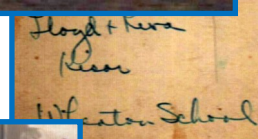 Lloyd + Reva
Kisor
Wheaton School